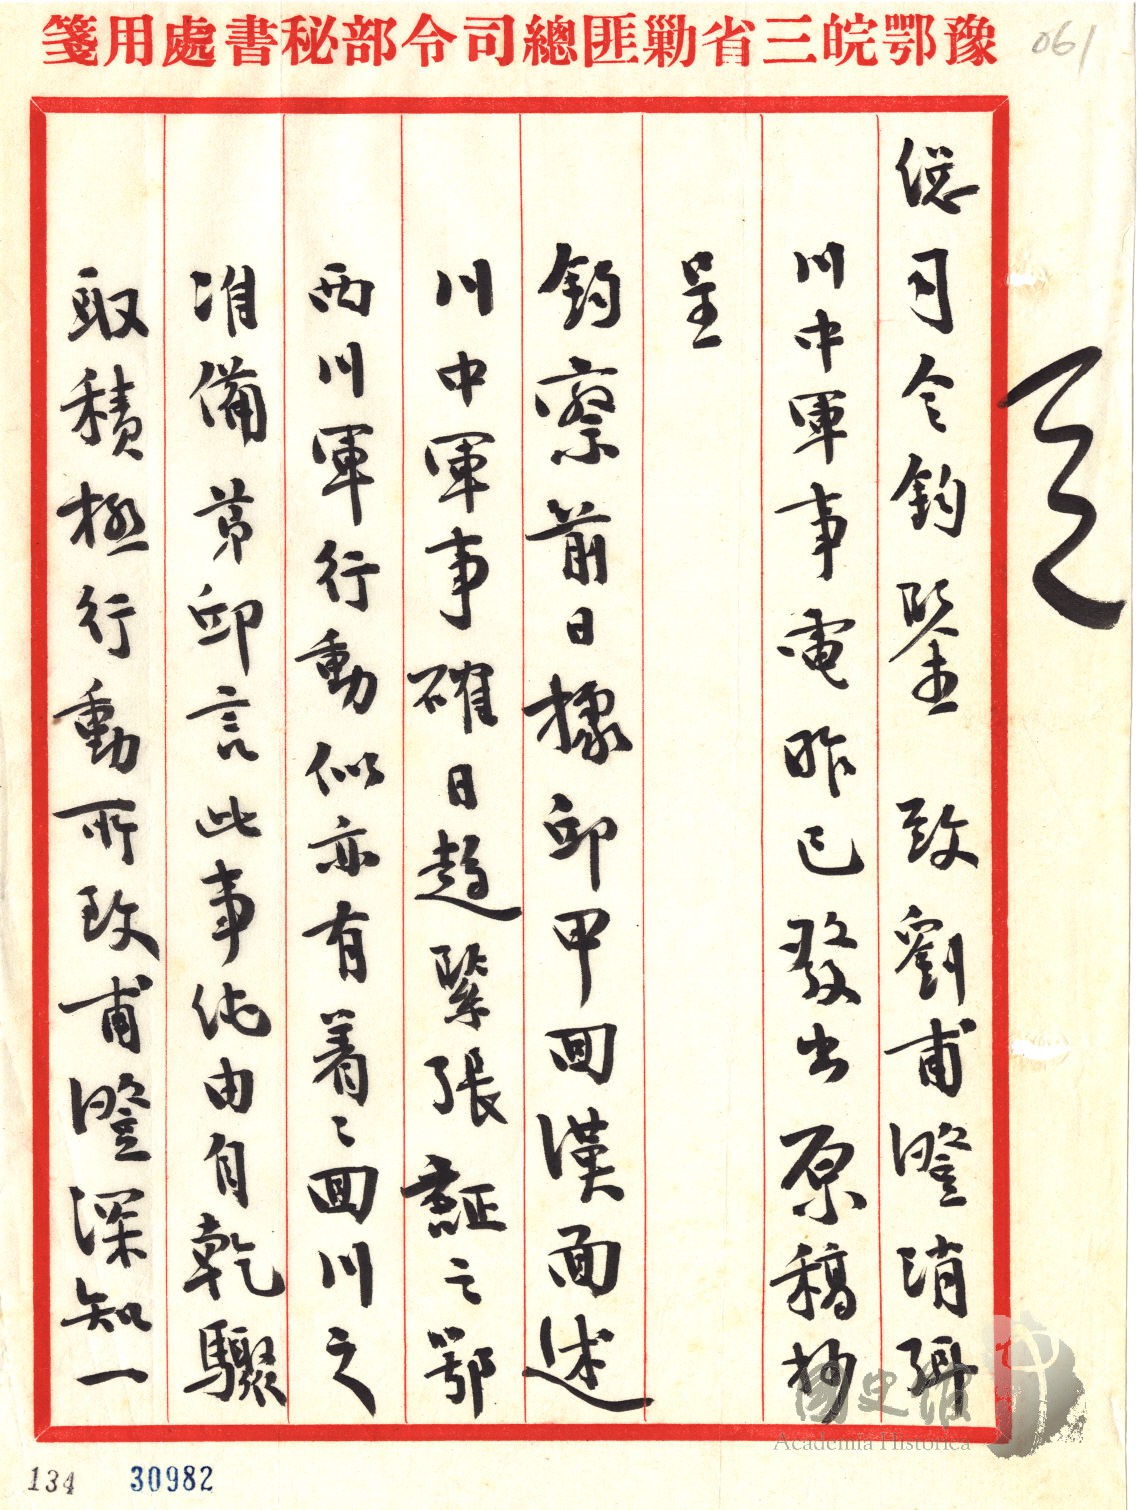 豫鄂皖三省勦匪總司令部秘書處用箋
061
总司令鈞鑒 致劉甫澄消弭
川中軍事電昨已發出原稿抄
呈
鈞察前日據邱甲回漢面述
川中軍事確日趨緊張証之鄂
西川軍行動似亦有着々回川之
準備第邱言此事純由自乾驟
取積極行動所致甫澄深知一
國史館
Academia Historica
134 30982